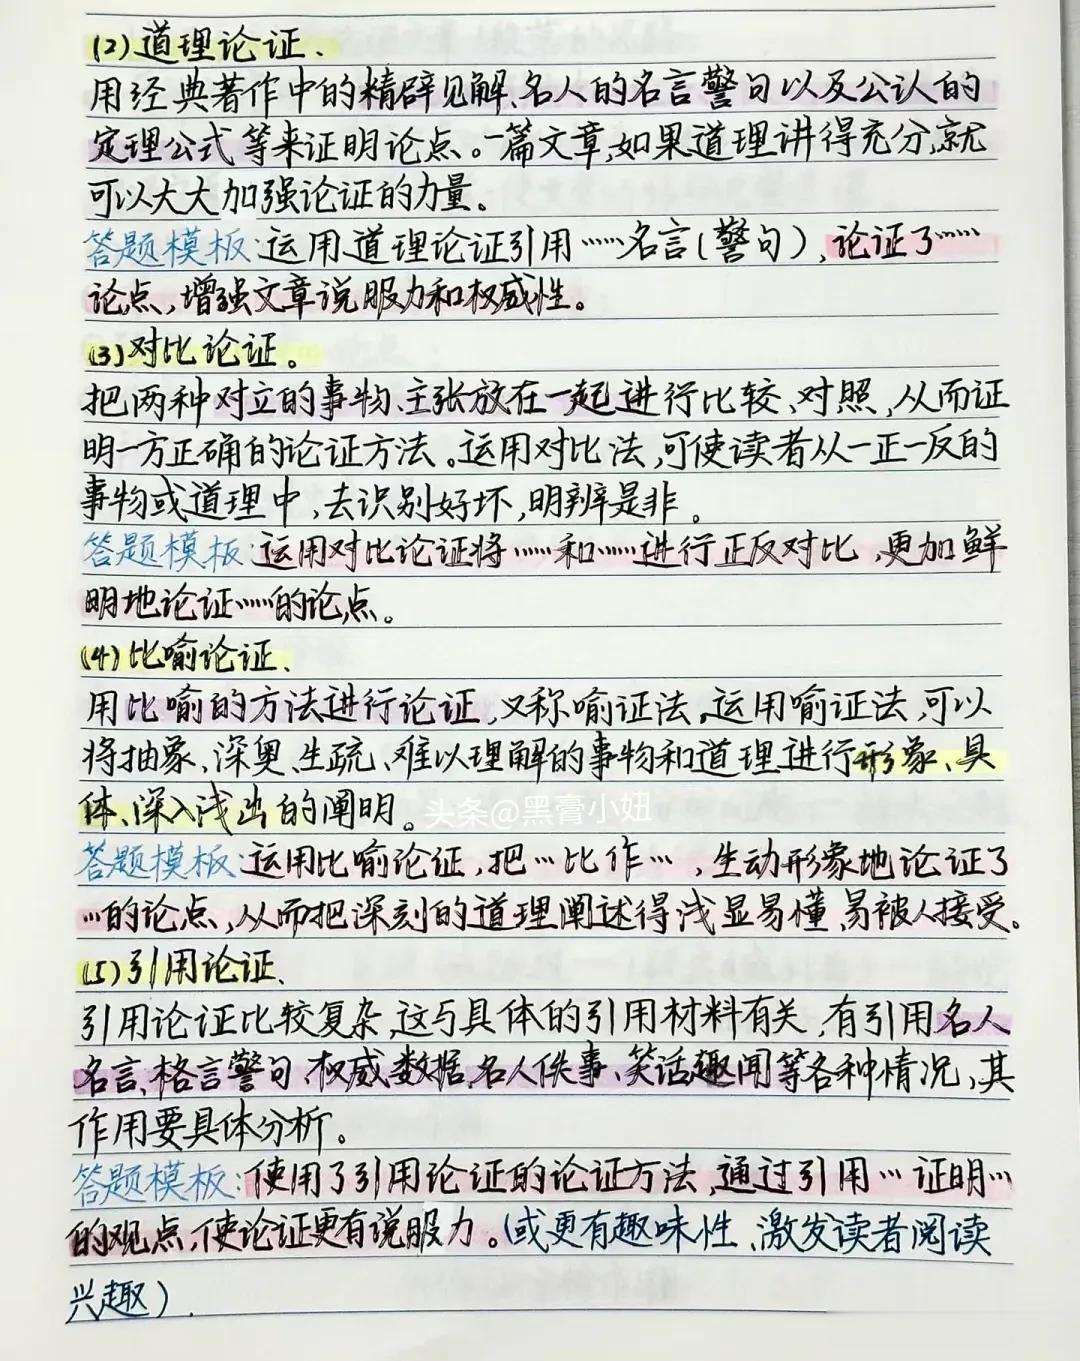 (2)道理论证.
用经典著作中的精辟见解、名人的名言警句以及公认的
定理公式等来证明论点。一篇文章,如果道理讲得充分,就
可以大大加强论证的力量。
答题模板:运用道理论证引用……名言(警句),论证了……
论点,增强文章说服力和权威性。
(3)对比论证。
把两种对立的事物、主张放在一起进行比较、对照,从而证
明一方正确的论证方法。运用对比法,可使读者从一正一反的
事物或道理中,去识别好坏,明辨是非。
答题模板:运用对比论证将……和……进行正反对比,更加鲜
明地论证……的论点。
(4)比喻论证.
用比喻的方法进行论证,又称喻证法.运用喻证法,可以
将抽象、深奥、生疏、难以理解的事物和道理进行形象、具
体、深入浅出的阐明。
头条@黑膏小妞
答题模板:运用比喻论证,把…比作…,生动形象地论证了
…的论点,从而把深刻的道理阐述得浅显易懂,易被人接受。
(5)引用论证.
引用论证比较复杂,这与具体的引用材料有关,有引用名人
名言、格言警句、权威数据、名人佚事、笑话趣闻等各种情况,其
作用要具体分析。
答题模板:使用了引用论证的论证方法,通过引用…证明…
的观点,使论证更有说服力。(或更有趣味性、激发读者阅读
兴趣).